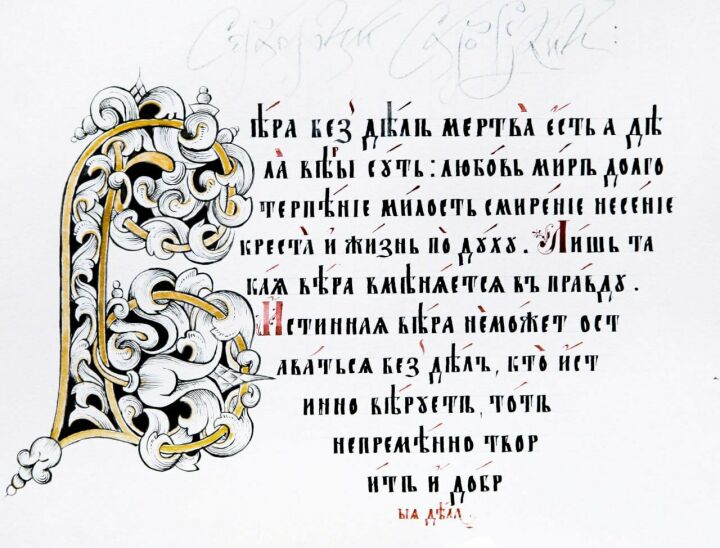 Вѣра без дѣлъ мертва есть а дѣ
ла вѣры суть: любовь миръ долго
терпѣніе милость смиреніе несеніе
креста и жизнь по духу. Лишь та
кая вѣра вмѣняется въ правду.
Истинная вѣра неможет ост
аваться без дѣлъ, кто ист
инно вѣруетъ, тотъ
непремѣнно твор
итъ и добр
ыя дѣла.